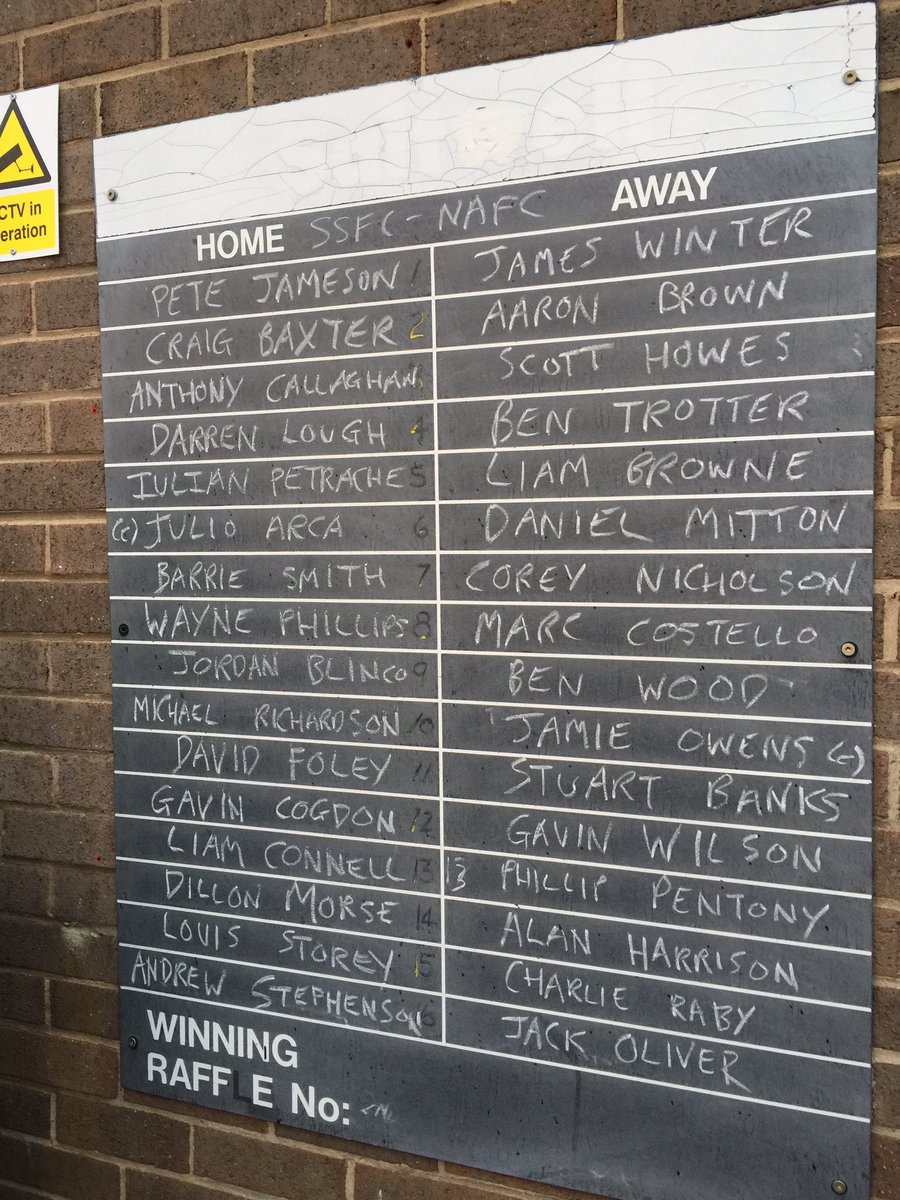 CTV in
eration
HOME SSFC - NAFC AWAY
PETE JAMESON 1 JAMES WINTER
CRAIG BAXTER 2 AARON BROWN
ANTHONY CALLAGHAN 3 SCOTT HOWES
DARREN LOUGH 4 BEN TROTTER
IULIAN PETRACHE 5 LIAM BROWNE
(c) JULIO ARCA 6 DANIEL MITTON
BARRIE SMITH 7 COREY NICHOLSON
WAYNE PHILLIPS 8 MARC COSTELLO
JORDAN BLINCO 9 BEN WOOD
MICHAEL RICHARDSON 10 JAMIE OWENS (c)
DAVID FOLEY 11 STUART BANKS
GAVIN COGDON 12 GAVIN WILSON
LIAM CONNELL 13 13 PHILLIP PENTONY
DILLON MORSE 14 ALAN HARRISON
LOUIS STOREY 15 CHARLIE RABY
ANDREW STEPHENSON 16 JACK OLIVER
WINNING
RAFFLE No: